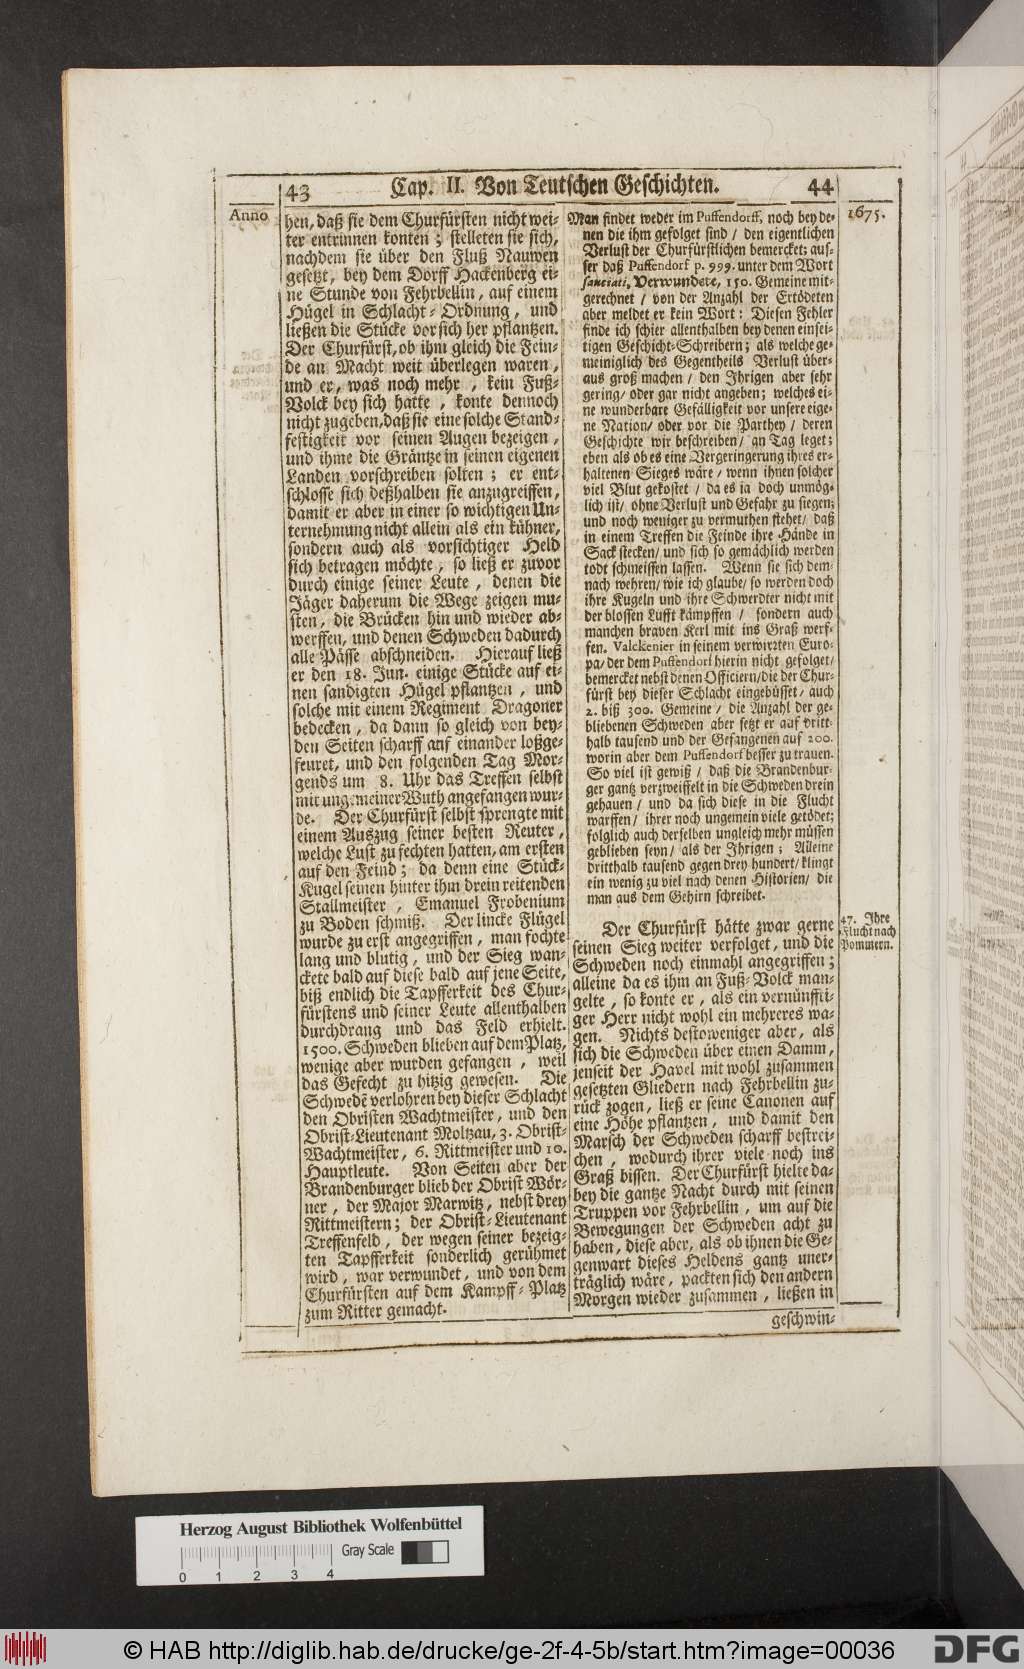 43
Cap. II. Von Teutschen Geschichten.
44
Anno
1675.
hen, daß sie dem Churfürsten nicht wei-
ter entrinnen konten; stelleten sie sich,
nachdem sie über den Fluß Nauwen
gesetzt, bey dem Dorff Hackenberg ei-
ne Stunde von Fehrbellin, auf einem
Hügel in Schlacht-Ordnung, und
ließen die Stücke vor sich her pflantzen.
Der Churfürst, ob ihm gleich die Fein-
de an Macht weit überlegen waren,
und er, was noch mehr, kein Fuß-
Volck bey sich hatte, konte dennoch
nicht zugeben, daß sie eine solche Stand-
festigkeit vor seinen Augen bezeigen,
und ihme die Gräntze in seinen eigenen
Landen vorschreiben solten; er ent-
schlosse sich deßhalben sie anzugreiffen,
damit er aber in einer so wichtigen Un-
ternehmung nicht allein als ein kühner,
sondern auch als vorsichtiger Held
sich betragen möchte, so ließ er zuvor
durch einige seiner Leute, denen die
Jäger daherum die Wege zeigen mu-
sten, die Brücken hin und wieder ab-
werffen, und denen Schweden dadurch
alle Pässe abschneiden. Hierauf ließ
er den 18. Jun. einige Stücke auf ei-
nen sandigten Hügel pflantzen, und
solche mit einem Regiment Dragoner
bedecken, da dann so gleich von bey-
den Seiten scharff auf einander loßge-
feuret, und den folgenden Tag Mor-
gends um 8. Uhr das Treffen selbst
mit ungemeiner Wuth angefangen wur-
de. Der Churfürst selbst sprengte mit
einem Auszug seiner besten Reuter,
welche Lust zu fechten hatten, am ersten
auf den Feind; da denn eine Stück-
Kugel seinen hinter ihm drein reitenden
Stallmeister, Emanuel Frobenium
zu Boden schmiß. Der lincke Flügel
wurde zu erst angegriffen, man fochte
lang und blutig, und der Sieg wan-
ckete bald auf diese bald auf jene Seite,
biß endlich die Tapfferkeit des Chur-
fürstens und seiner Leute allenthalben
durchdrang und das Feld erhielt.
1500. Schweden blieben auf dem Platz,
wenige aber wurden gefangen, weil
das Gefecht zu hitzig gewesen. Die
Schwedẽ verlohren bey dieser Schlacht
den Obristen Wachtmeister, und den
Obrist-Lieutenant Moltzau, 3. Obrist-
Wachtmeister, 6. Rittmeister und 10.
Hauptleute. Von Seiten aber der
Brandenburger blieb der Obrist Wör-
ner, der Major Marwitz, nebst drey
Rittmeistern; der Obrist-Lieutenant
Treffenfeld, der wegen seiner bezeig-
ten Tapfferkeit sonderlich gerühmet
wird, war verwundet, und von dem
Churfürsten auf dem Kampff-Platz
zum Ritter gemacht.
Man findet weder im Puffendorff, noch bey de-
nen die ihm gefolget sind / den eigentlichen
Verlust der Churfürstlichen bemercket; auf-
ser daß Puffendorf p. 999. unter dem Wort
sauciati, Verwundete, 150. Gemeine mit-
gerechnet / von der Anzahl der Ertödeten
aber meldet er kein Wort: Diesen Fehler
finde ich schier allenthalben bey denen einsei-
tigen Geschicht-Schreibern; als welche ge-
meiniglich des Gegentheils Verlust über-
aus groß machen / den Ihrigen aber sehr
gering / oder gar nicht angeben; welches ei-
ne wunderbare Gefälligkeit vor unsere eige-
ne Nation / oder vor die Parthey / deren
Geschichte wir beschreiben / an Tag leget;
eben als ob es eine Vergeringerung ihres er-
haltenen Sieges wäre / wenn ihnen solcher
viel Blut gekostet / da es ja doch unmög-
lich ist / ohne Verlust und Gefahr zu siegen;
und noch weniger zu vermuthen stehet / daß
in einem Treffen die Feinde ihre Hände in
Sack stecken / und sich so gemächlich werden
todt schmeissen lassen. Wenn sie sich dem-
nach wehren / wie ich glaube / so werden doch
ihre Kugeln und ihre Schwerdter nicht mit
der blossen Lufft kämpffen / sondern auch
manchen braven Kerl mit ins Graß werf-
fen. Valckenier in seinem verwirrten Euro-
pa / der dem Puffendorf hierin nicht gefolget /
bemercket nebst denen Officiern / die der Chur-
fürst bey dieser Schlacht eingebüsset / auch
2. biß 300. Gemeine / die Anzahl der ge-
bliebenen Schweden aber setzt er auf dritt-
halb tausend und der Gefangenen auf 200.
worin aber dem Puffendorf besser zu trauen.
So viel ist gewiß / daß die Brandenbur-
ger gantz verzweiffelt in die Schweden drein
gehauen / und da sich diese in die Flucht
warffen / ihrer noch ungemein viele getödet;
folglich auch derselben ungleich mehr müssen
geblieben seyn / als der Ihrigen; Alleine
dritthalb tausend gegen drey hundert / klingt
ein wenig zu viel nach denen Historien / die
man aus dem Gehirn schreibet.
Der Churfürst hätte zwar gerne
seinen Sieg weiter verfolget, und die
Schweden noch einmahl angegriffen;
alleine da es ihm an Fuß-Volck man-
gelte, so konte er, als ein vernünffti-
ger Herr nicht wohl ein mehreres wa-
gen. Nichts destoweniger aber, als
sich die Schweden über einen Damm,
jenseit der Havel mit wohl zusammen
gesetzten Gliedern nach Fehrbellin zu-
rück zogen, ließ er seine Canonen auf
eine Höhe pflantzen, und damit den
Marsch der Schweden scharff bestrei-
chen, wodurch ihrer viele noch ins
Graß bissen. Der Churfürst hielte da-
bey die gantze Nacht durch mit seinen
Truppen vor Fehrbellin, um auf die
Bewegungen der Schweden acht zu
haben, diese aber, als ob ihnen die Ge-
genwart dieses Heldens gantz uner-
träglich wäre, packten sich den andern
Morgen wieder zusammen, ließen in
geschwin-
47. Ihre
Flucht nach
Pommern.
Herzog August Bibliothek Wolfenbüttel
Gray Scale
0 1 2 3 4
© HAB http://diglib.hab.de/drucke/ge-2f-4-5b/start.htm?image=00036
DFG